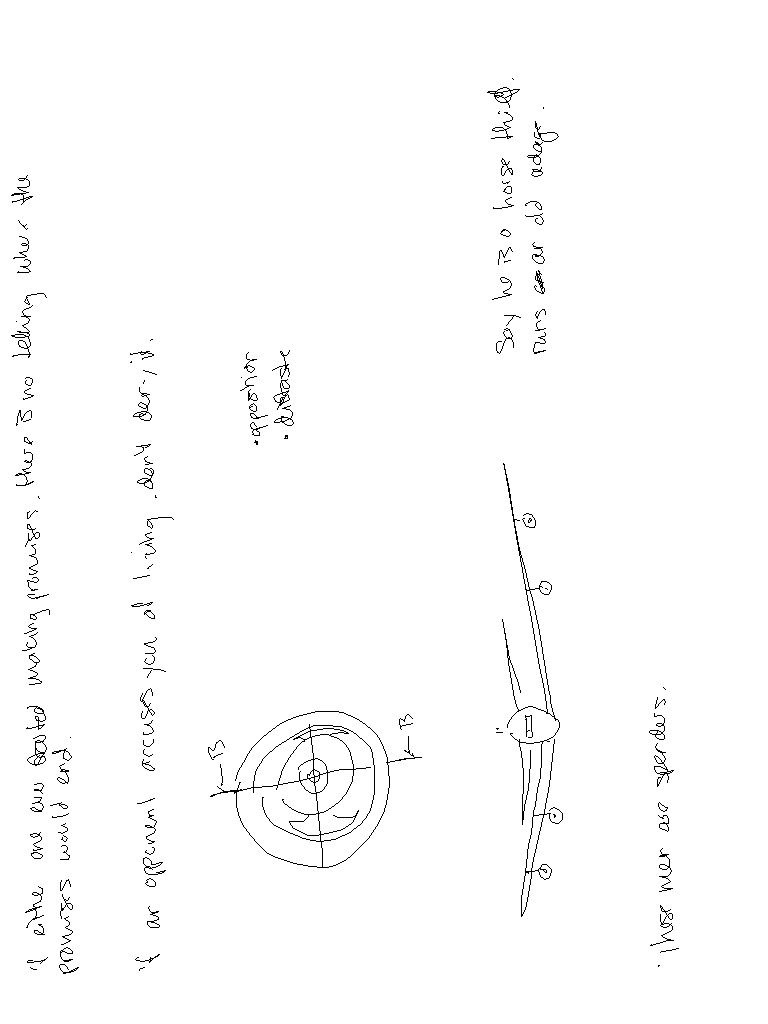 if either one ever started making promises, there is no telling where the
promises would end.
if an opponent accuses you of living, don't deny it.
• opposition
• distaste
B
B
Say he is a horse thief.
runs an old adage.
"
• These men are spenders.